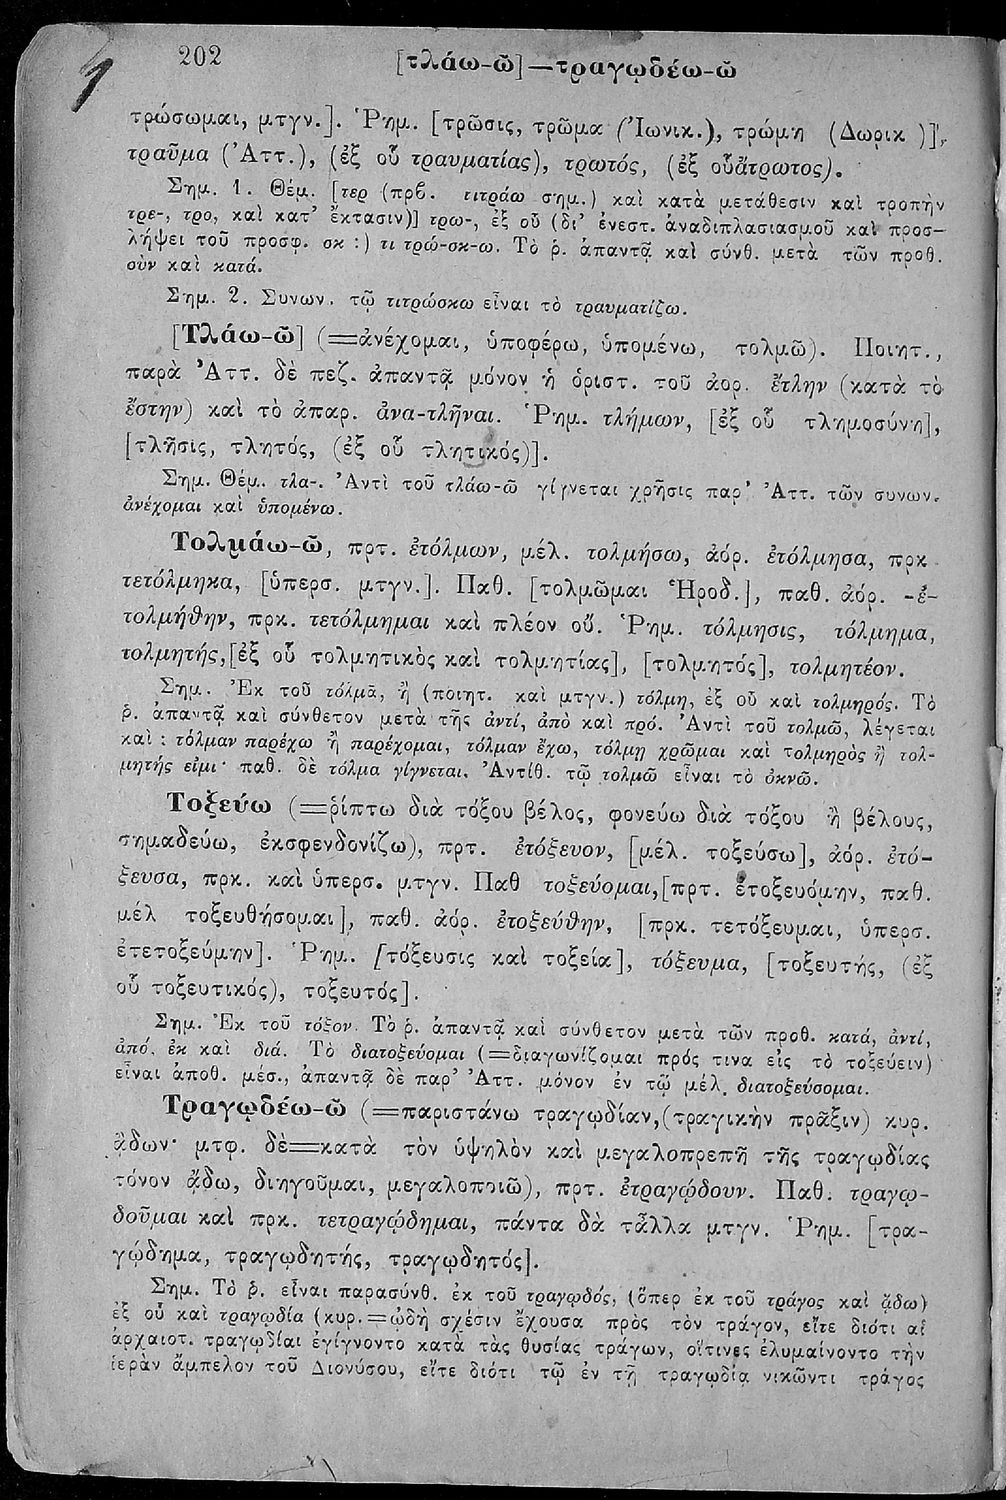 202
[τλάω-ῶ]—τραγῳδέω-ῶ
τρώσωμαι, μτγν.]. Ῥημ. [τρῶσις, τρῶμα (Ἰωνικ.), τρώμη (Δωρικ )],
τραῦμα (Ἀττ.), (ἐξ οὗ τραυματίας), τρωτός, (ἐξ οὗἄτρωτος).
Σημ. 1. Θέμ. [τερ (πρβ. τιτράω σημ.) καὶ κατὰ μετάθεσιν καὶ τροπὴν
τρε-, τρο, καὶ κατ' ἔκτασιν)] τρω-, ἐξ οὗ (δι' ἐνεστ. ἀναδιπλασιασμοῦ καὶ προσ-
λήψει τοῦ προσφ. σκ :) τι τρώ-σκ-ω. Τὸ ῥ. ἀπαντᾷ καὶ σύνθ. μετὰ τῶν προθ.
σὺν καὶ κατά.
Σημ. 2. Συνων. τῷ τιτρώσκω εἶναι τὸ τραυματίζω.
[Τλάω-ῶ] (=ἀνέχομαι, ὑποφέρω, ὑπομένω, τολμῶ). Ποιητ.,
παρὰ Ἀττ. δὲ πεζ. ἀπαντᾷ μόνον ἡ ὁριστ. τοῦ ἀορ. ἔτλην (κατὰ τὸ
ἔστην) καὶ τὸ ἀπαρ. ἀνα-τλῆναι. Ῥημ. τλήμων, [ἐξ οὗ τλημοσύνη],
[τλῆσις, τλητός, (ἐξ οὗ τλητικός)].
Σημ. Θέμ. τλα-. Ἀντὶ τοῦ τλάω-ῶ γίγνεται χρῆσις παρ' Ἀττ. τῶν συνων.
ἀνέχομαι καὶ ὑπομένω.
Τολμάω-ῶ, πρτ. ἐτόλμων, μέλ. τολμήσω, ἀόρ. ἐτόλμησα, πρκ
τετόλμηκα, [ὑπερσ. μτγν.]. Παθ. [τολμῶμαι Ἡροδ.], παθ. ἀόρ. -ἐ-
τολμήθην, πρκ. τετόλμημαι καὶ πλέον οὔ. Ῥημ. τόλμησις, τόλμημα,
τολμητής,[ἐξ οὗ τολμητικὸς καὶ τολμητίας], [τολμητός], τολμητέον.
Σημ. Ἐκ τοῦ τόλμᾰ, ἢ (ποιητ. καὶ μτγν.) τόλμη, ἐξ οὗ καὶ τολμηρός. Τὸ
ῥ. ἀπαντᾷ καὶ σύνθετον μετὰ τῆς ἀντί, ἀπὸ καὶ πρό. Ἀντὶ τοῦ τολμῶ, λέγεται
καὶ : τόλμαν παρέχω ἢ παρέχομαι, τόλμαν ἔχω, τόλμῃ χρῶμαι καὶ τολμηρὸς ἢ τολ-
μητής εἰμι· παθ. δὲ τόλμα γίγνεται. Ἀντίθ. τῷ τολμῶ εἶναι τὸ ὀκνῶ.
Τοξεύω (=ῥίπτω διὰ τόξου βέλος, φονεύω διὰ τόξου ἢ βέλους,
σημαδεύω, ἐκσφενδονίζω), πρτ. ἐτόξευον, [μέλ. τοξεύσω], ἀόρ. ἐτό-
ξευσα, πρκ. καὶ ὑπερσ. μτγν. Παθ τοξεύομαι,[πρτ. ἐτοξευόμην, παθ.
μέλ τοξευθήσομαι], παθ. ἀόρ. ἐτοξεύθην, [πρκ. τετόξευμαι, ὑπερσ.
ἐτετοξεύμην]. Ῥημ. [τόξευσις καὶ τοξεία], τόξευμα, [τοξευτής, (ἐξ
οὗ τοξευτικός), τοξευτός].
Σημ. Ἐκ τοῦ τόξον. Τὸ ῥ. ἀπαντᾷ καὶ σύνθετον μετὰ τῶν προθ. κατά, ἀντί,
ἀπό, ἐκ καὶ διά. Τὸ διατοξεύομαι (=διαγωνίζομαι πρός τινα εἰς τὸ τοξεύειν)
εἶναι ἀποθ. μέσ., ἀπαντᾷ δὲ παρ' Ἀττ. μόνον ἐν τῷ μέλ. διατοξεύσομαι.
Τραγῳδέω-ῶ (=παριστάνω τραγῳδίαν,(τραγικὴν πρᾶξιν) κυρ.
ᾄδων· μτφ. δὲ=κατὰ τὸν ὑψηλὸν καὶ μεγαλοπρεπῆ τῆς τραγῳδίας
τόνον ᾄδω, διηγοῦμαι, μεγαλοποιῶ), πρτ. ἐτραγῴδουν. Παθ. τραγῳ-
δοῦμαι καὶ πρκ. τετραγῴδημαι, πάντα δὰ τἆλλα μτγν. Ῥημ. [τρα-
γῴδημα, τραγῳδητής, τραγῳδητός].
Σημ. Τὸ ῥ. εἶναι παρασύνθ. ἐκ τοῦ τραγῳδός, (ὅπερ ἐκ τοῦ τράγος καὶ ᾄδω)
ἐξ οὗ καὶ τραγῳδία (κυρ.=ᾠδὴ σχέσιν ἔχουσα πρὸς τὸν τράγον, εἴτε διότι αἱ
ἀρχαιοτ. τραγῳδίαι ἐγίγνοντο κατὰ τὰς θυσίας τράγων, οἵτινες ἐλυμαίνοντο τὴν
ἱερὰν ἄμπελον τοῦ Διονύσου, εἴτε διότι τῷ ἐν τῇ τραγῳδίᾳ νικῶντι τράγος